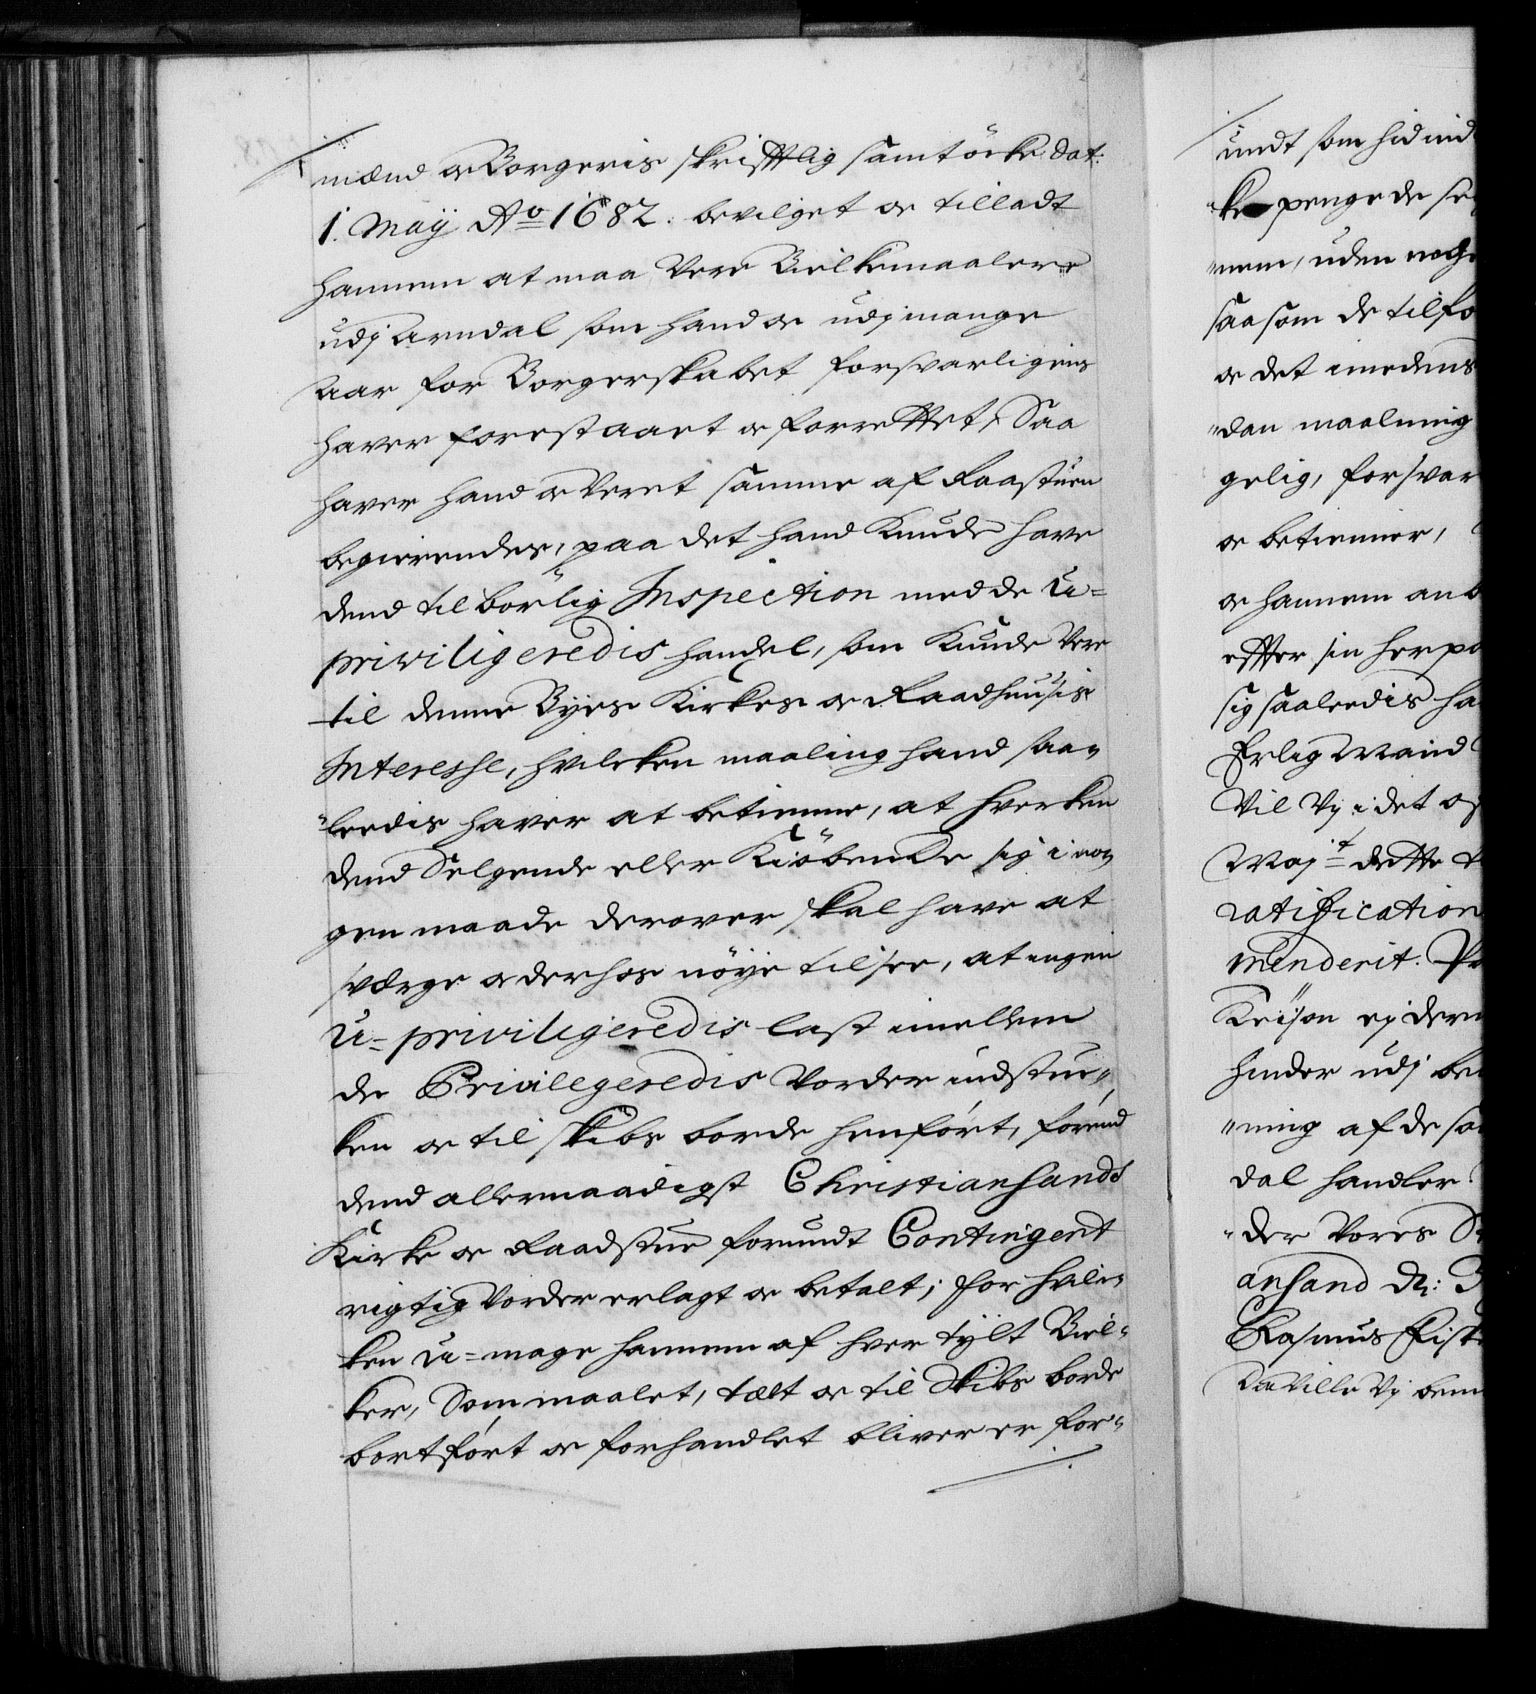 mænd og Borgeris skrifftlig samtöcke dat:
1. Maÿ Ao 1682. bevilget og tilladt
hannem at maa Vere Bielkemaalere
udj Arndal som hand og udj mange
Aar for Borgerskabet forsvarligens
haver forestaaet og forrettet, Saa
haver hand og Veret samme af Raastuen
begierendes, paa det hand Kunde have
dend tilbörlig Inspection med de U=
priviligeredis handel, som Kunde Vere
til denne Byes Kirkes og Raadhuusis
Interesse, hvilcken maaling hand saa„
„leedis haver at betienne, at hverken
dend Selgende eller Kiöbende sig i nog
gen maade derover skal have at
besværge og derhos nöye tilsee, at ingen
U=priviligeredis last imellem
de Privilegeredis Vorder indstuc„
ken og til skibs borde henfört, förend
dend allernaadigst Christiansands
Kirke og Raadstue forundt Contingent
rigtig Vorder erlagt og betalt; for hvil„
ken U=mage hannem af hver tylt Biel„
ker, Som maalet, talt og til Skibs borde
bortfört og forhandlet bliver er for„
undt som hid ind
„ke penge de se
„nem, uden noge
saasom de tilfo
og det imedens
„dan maalning
gelig, forsvar
og betienner,
og hannem anb
effter sin her paa
sig saaleedis ha
Erlig Mand
Vil Vj i det og
Majt dette
ratification
menderit. Pr
ej der
hinder udj be
„ning af de sa
dal handler
„der Vores
ansand d:
Rasmus
Da Ville Vj bem